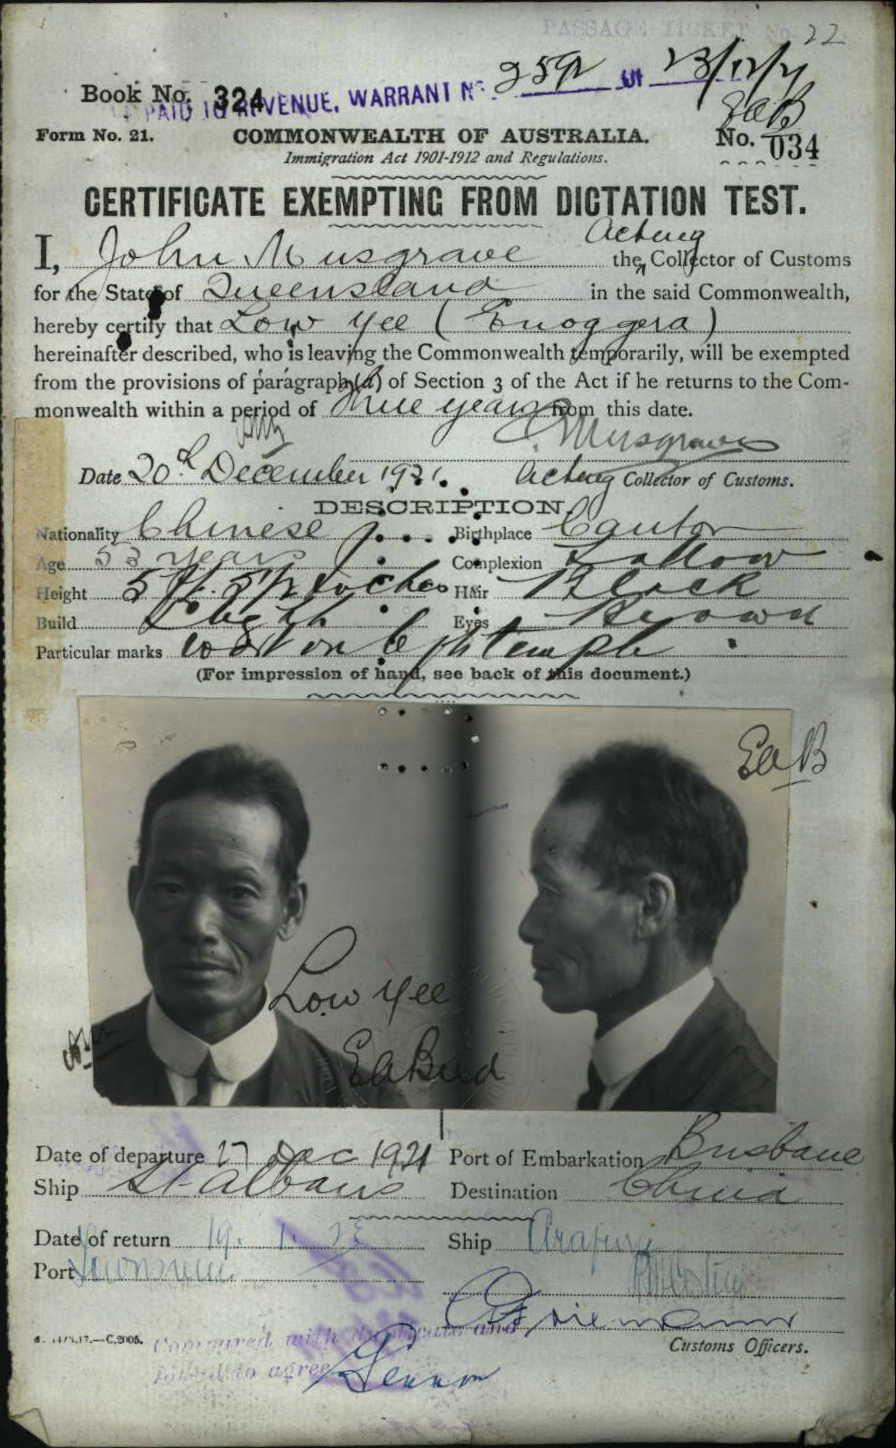 PASSAGE TICKET No. 22
Book No. 324
PAID TO REVENUE. WARRANT No. 2592 of 23/12/21
EaB
Form No. 21. COMMONWEALTH OF AUSTRALIA. No. 034
Immigration Act 1901-1912 and Regulations.
CERTIFICATE EXEMPTING FROM DICTATION TEST.
Acting
I, John Musgrave the Collector of Customs
for the State of Queensland in the said Commonwealth,
hereby certify that Low Yee (Enoggera)
hereinafter described, who is leaving the Commonwealth temporarily, will be exempted
from the provisions of paragraph (a) of Section 3 of the Act if he returns to the Com-
monwealth within a period of three years from this date.
J. Musgrave
Date 20th December 1921. Acting Collector of Customs.
DESCRIPTION.
Nationality Chinese Birthplace Canton
Age 53 years Complexion Sallow
Height 5 ft. 5½ inches Hair Black
Build Slight Eyes Brown
Particular marks on temple
(For impression of hand, see back of this document.)
EaB
Low Yee
EaBird
Date of departure 27 Dec 1921 Port of Embarkation Brisbane
Ship St Albans Destination China
Date of return 19. 1. Ship Arafura
Port
Customs Officers.
C.2005.
Compared with duplicate and
found to agree